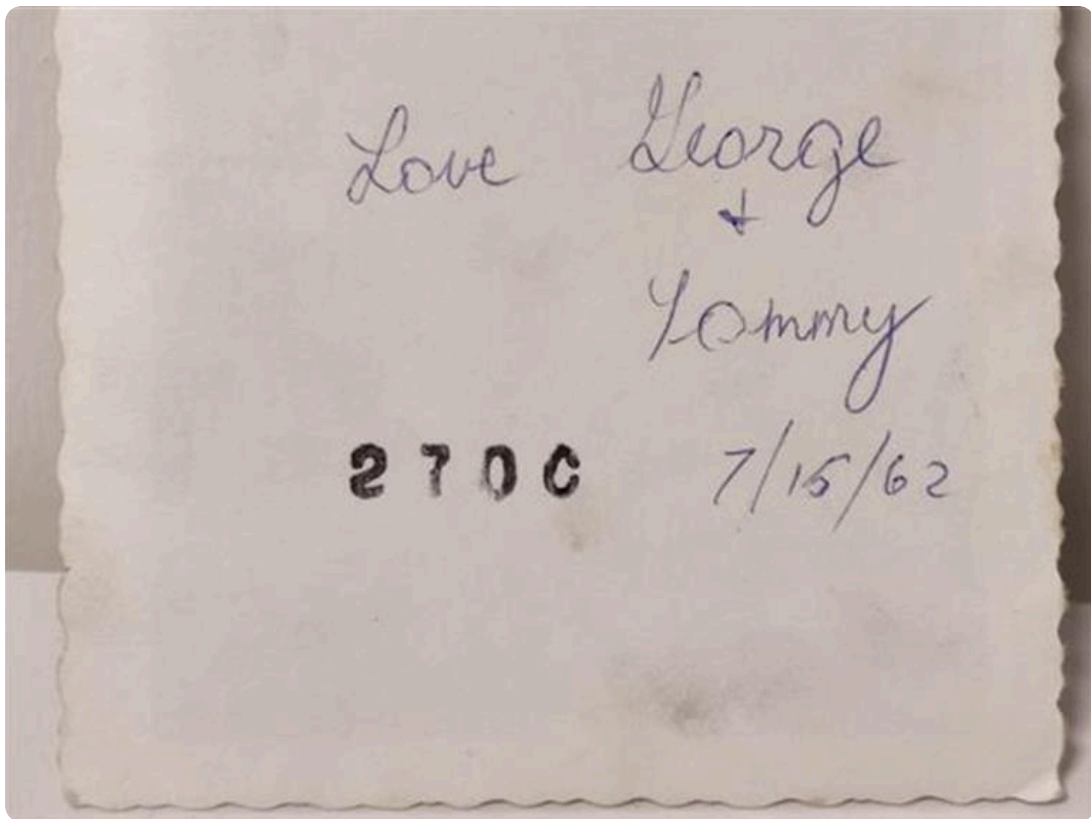 Love George
+
Tommy
270C 7/15/62